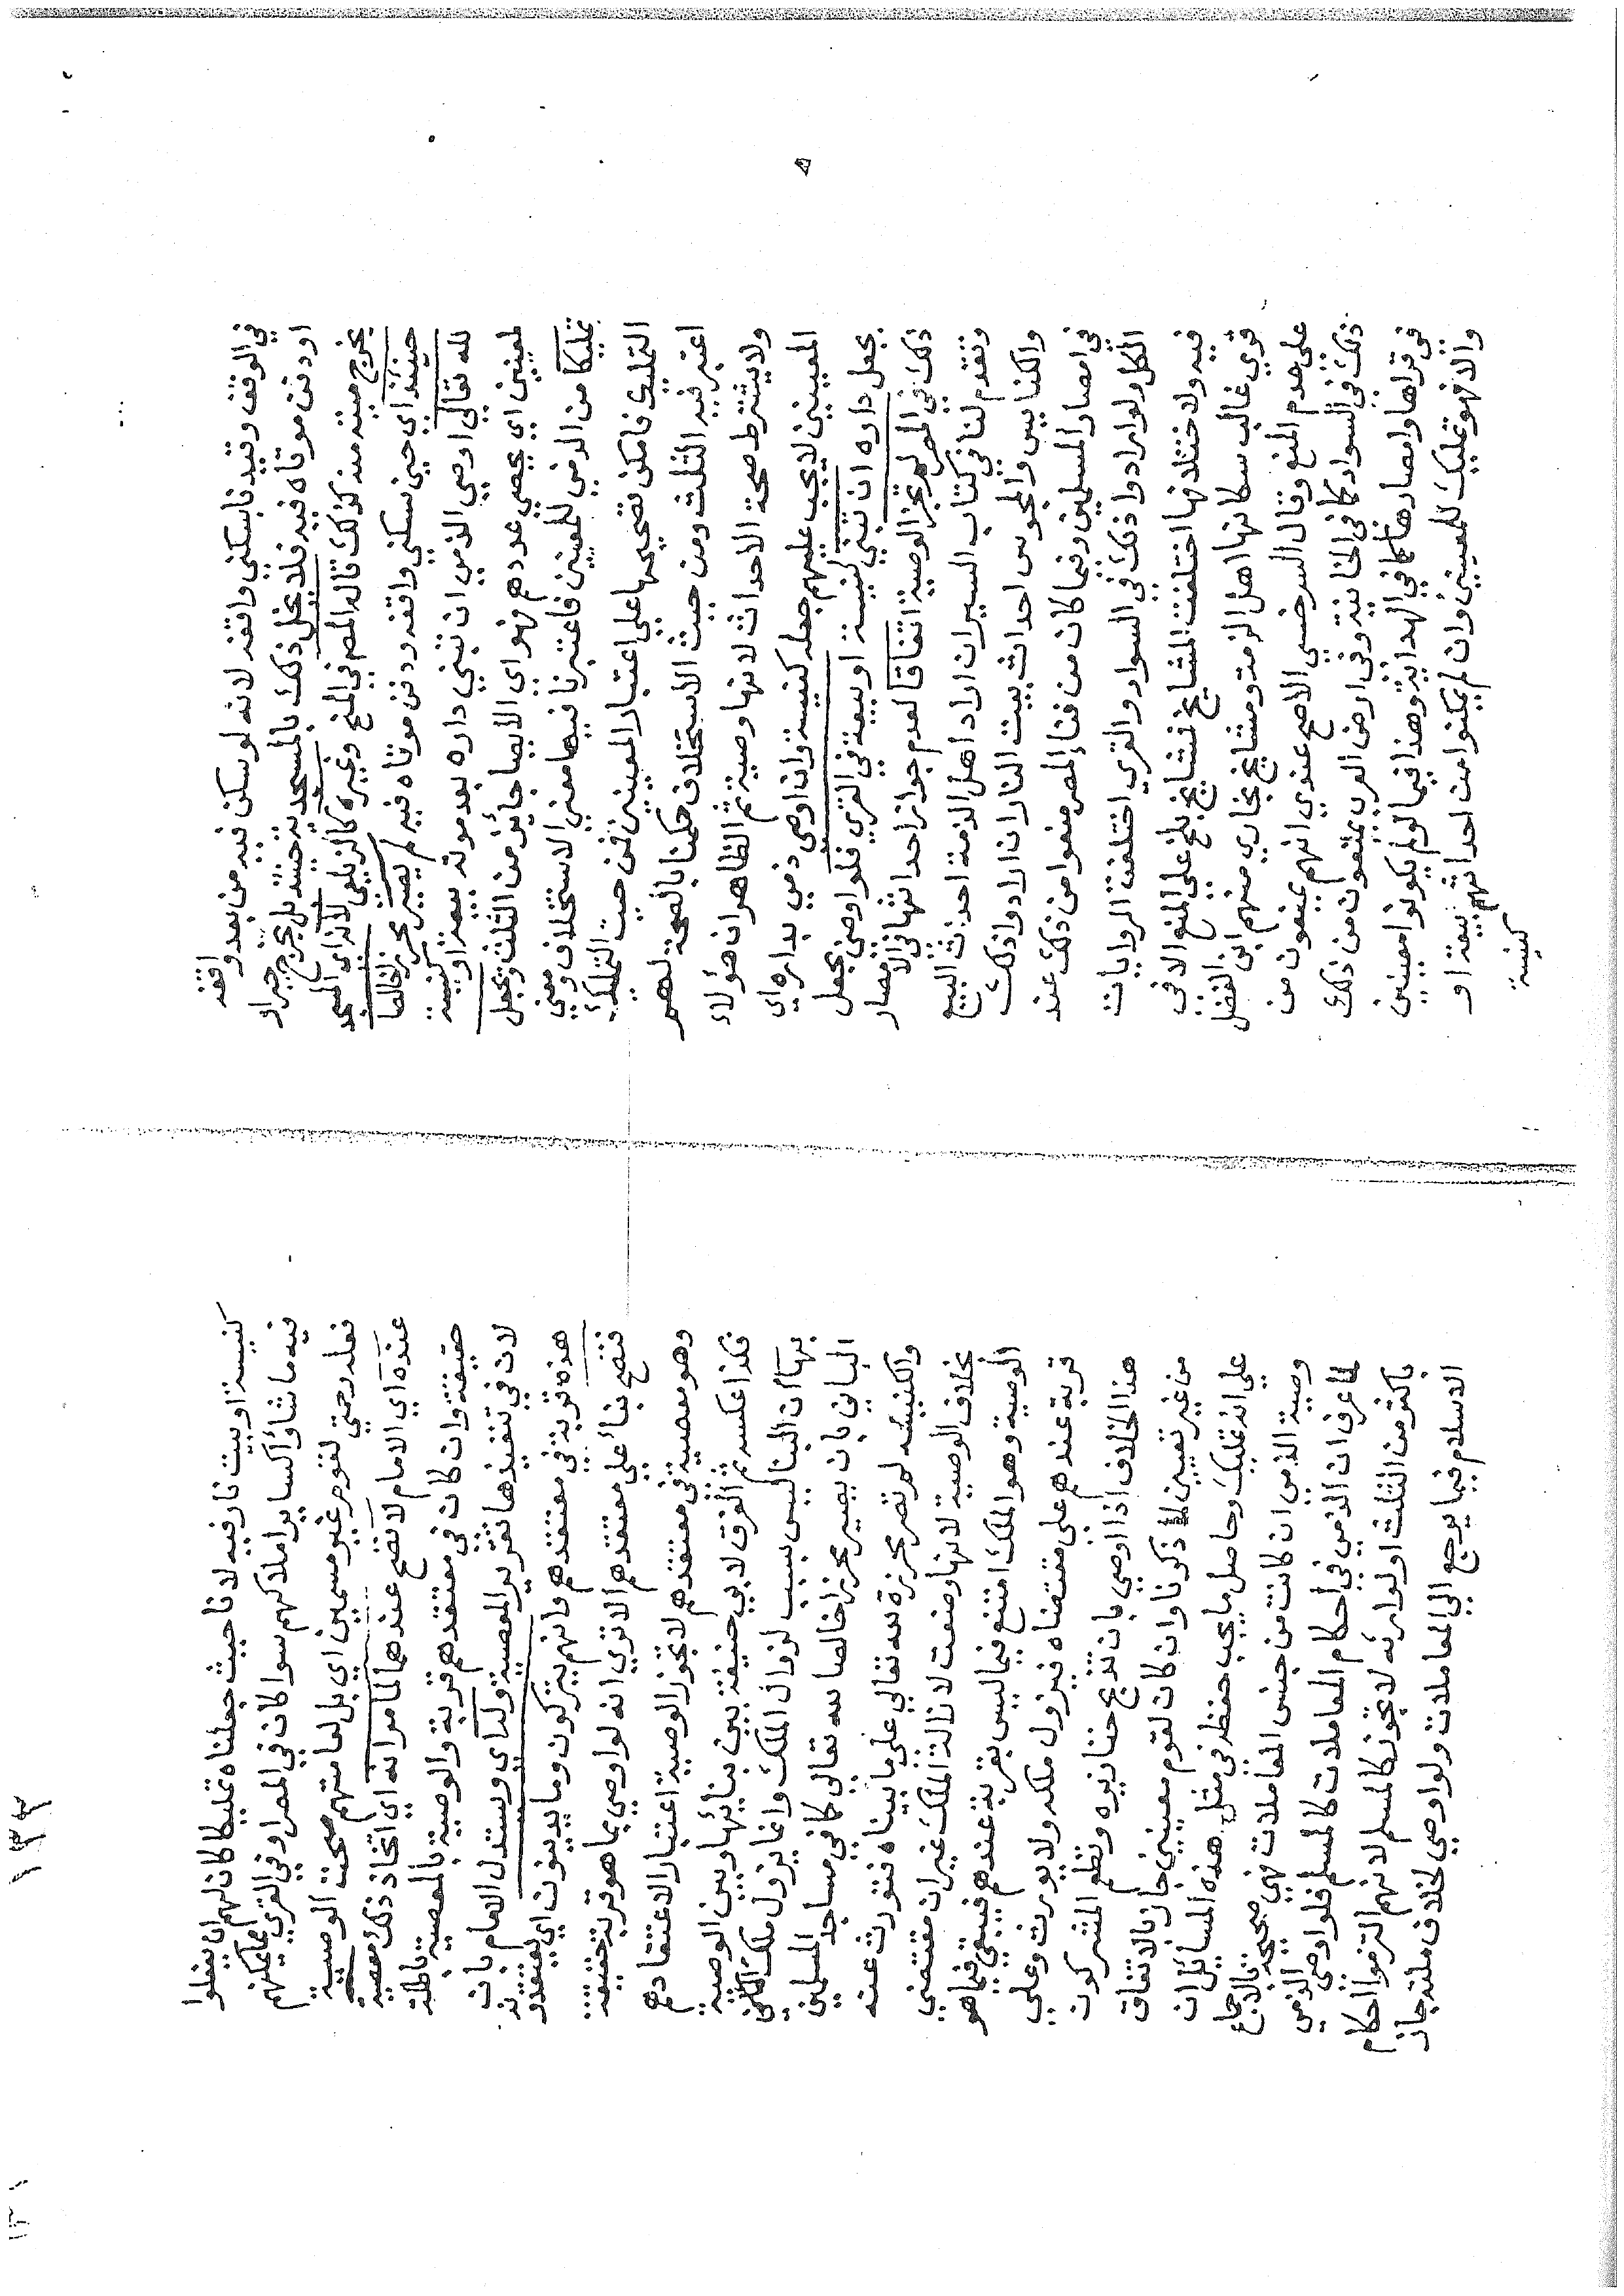 في الوقف وقيدنا بسكني واقفه لانه لو سكن فيه من بعد واقفه
او دفن موتاه فيه فلا يخل ذلك بالمسجدية حينئذ بل يخرج جبرا و
يخرج ميته منه كذلك قاله المص في المنح وغيره كالزيلعي لانه اي المسجد
حينئذ اي حين سكني واقفه ودفن موتاه فيه لم يصير محرزا خالصا
لله تعالي اوصي الذمي ان تبني داره بعد موته بيعة او كنيسة
لمعينين اي يحصي عددهم فهو اي الايصا جائز من الثلث ويجعل
تمليكا من الذمي للمعينين فاعتبرنا فيها معني الاستخلاف ومعني
التمليك فامكن تصحيحها علي اعتبار المعينين فمن حيث التمليك
اعتبر فيه الثلث ومن حيث الاستخلاف حكمنا بالصحة لهم
ولا يشترط صحة الاحداث لانها وصية ثم الظاهر ان هؤلاء
المعينين لا يجب عليهم جعله كنيسة وان اوصي ذمي بداره اي
بجعل داره ان تبني كنيسة او بيعة في القري فلو اوصي بجعل
ذلك في المصر لم تجز الوصية اتفاقا لعدم جواز احداثها في الامصار
وتقدم لنا في كتاب السير ان اراد اهل الذمة احدث البيع
والكنايس والمجوس احداث بيت النار ان ارادوا ذلك
في امصار المسلمين وفيما كان من فناء المصر منعوا من ذلك عند
الكل ولو ارادوا ذلك في السواد والقري اختلفت الروايات
فيه ولاختلافها اختلفت المشايخ فمشايخ بلخ علي المنع الا في
قري غالب سكانها اهل الذمة ومشايخ بخاري منهم ابن الفضل
علي عدم المنع وقال السرخسي الاصح عندي انهم يمنعون من
ذلك في السواد كما في الخانية وفي ارض العرب يمنعون من ذلك
في قراها وامصارها كما في الهداية وهذا فيما لو لم يكونوا معينين
والا فهو تمليك للمعينين وان لم يمكنوا من احداثهم بيعة او
كنيسة
١٣٣
كنيسة او بيت نار فيه لانا حيث جعلناه تمليكا كان لهم ان يفعلوا
فيه ما شاؤا كساير املاكهم سوا كان في المصر او في القري بما يمكنهم
فعله لقوم غير مسمين اي بل لعامتهم صحت الوصية
عنده اي الامام لا تصح عندهما لما مر انه اي اتخاذ ذلك معصية
حقيقة وان كان في معتقدهم قربة والوصية بالمعصية باطلة
لان في تنفيذها تقرير المعصية وله اي ويستدل الامام بان
هذه قربة في معتقدهم وانهم يتركون وما يدينون اي يعتقدونه
فتصح بنا علي معتقدهم الا تري انه لو اوصي بما هو قربة حقيقة
وهو معصية في معتقدهم لا تجوز الوصية اعتبارا لاعتقادهم
فكذا عكسه ثم الفرق لابي حنيفة بين بنائها وبين الوصية
بها ان البنا ليس بسبب لزوال الملك وانما يزول ملك
الباني بان يصير محرزا خالصا لله تعالي كما في مساجد المسلمين
والكنيسه لم تصر محرزة لله تعالي علي ما بيناه فتورث عنه
بخلاف الوصية لانها وضعت لازالة الملك غير ان مقتضي
الوصية وهو الملك امتنع فيما ليس بقربة عندهم فيبقي فيما هو
قربة عندهم علي مقتضاه فيزول ملكه ولا يورث وعلي
هذا الخلاف اذا اوصي بان تذبح خنازيره وتطعم المشركون
من غير تعيين لما ذكرنا وان كان لقوم معينين جاز بالاتفاق
علي انه تمليك وحاصل ما يجب حفظه في مثل هذه المسايل ان
وصية الذمي ان كانت من جنس المعاملات فهي صحيحة بالاجماع
لما عرف ان الذمي في احكام المعاملات كالمسلم فلو اوصي الذمي
باكثر من الثلث او لوارثه لا تجوز كالمسلم لانهم التزموا احكام
الاسلام فيما يرجع الي المعاملات ولو اوصي لخلاف ملته جاز